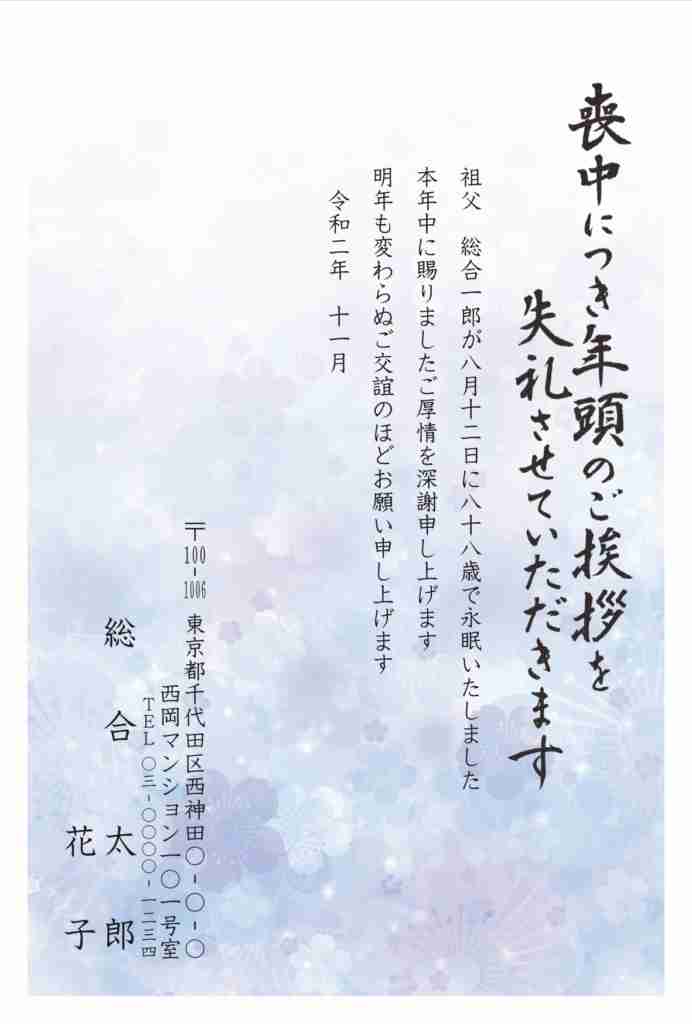 喪中につき年頭のご挨拶を
失礼させていただきます
祖父　総合一郎が八月十二日に八十八歳で永眠いたしました
本年中に賜りましたご厚情を深謝申し上げます
明年も変わらぬご交誼のほどお願い申し上げます
令和二年　十一月
〒100-1006　東京都千代田区西神田〇-〇-〇
西岡マンション一〇一号室
TEL〇三-〇〇〇〇-一二三四
総　合　太　郎
花　子